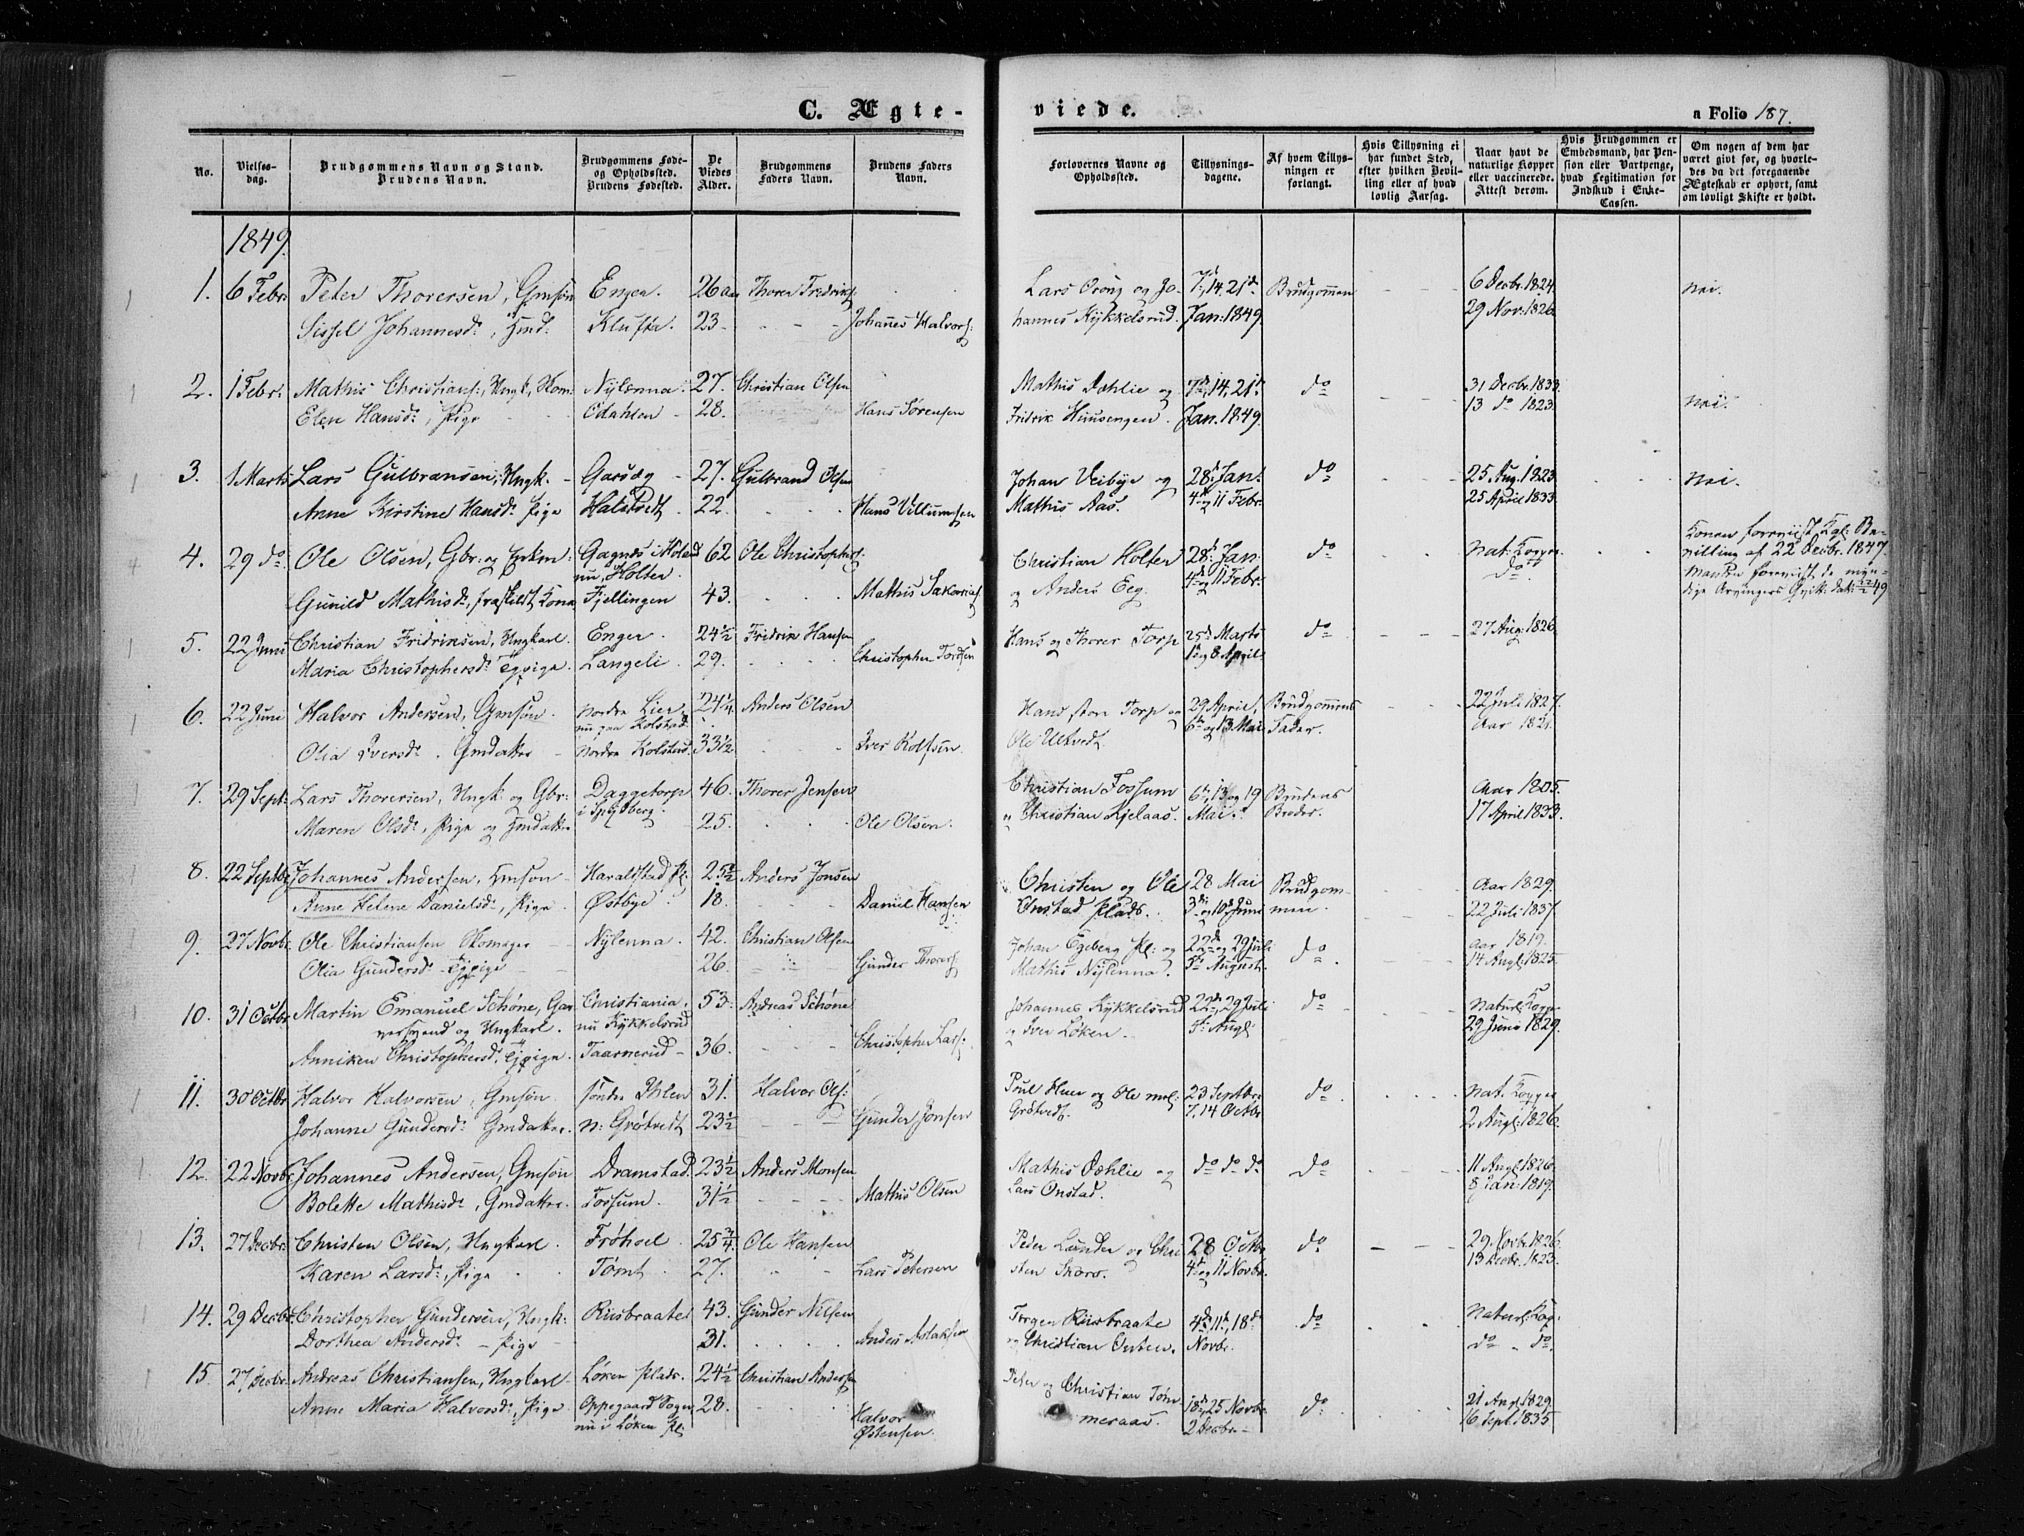 C. Ægte-
viede.
a Folio 187.
No.
Vielses-
dag.
Brudgommens Navn og Stand.
Brudens Navn.
Brudgommens Føde-
og Opholdssted.
Brudens Fødested.
De
Viedes
Alder.
Brudgommens
Faders Navn.
Brudens Faders
Navn.
Forlovernes Navne og
Opholdssted.
Tillysnings-
dagene.
Af hvem Tillys-
ningen er
forlangt.
Hvis Tillysning ei
har fundet Sted,
efter hvilken Bevil-
ling eller af hvad
lovlig Aarsag.
Naar havt de
naturlige Kopper
eller vaccinerede.
Attest derom.
Hvis Brudgommen er
Embedsmand, har Pen-
sion eller Vartpenge,
hvad Legitimation for
Indskud i Enke-
Cassen.
Om nogen af dem har
været gift før, og hvorle-
des da det foregaaende
Ægteskab er ophørt, samt
om lovligt Skifte er holdt.
1849.
1. 6 Febr. Peter Thorersen, Gmsøn Enger. 26 Thorer Fredriks. Lars Orong og Jo- 7d, 14, 21d Brudgommen 6 Decbr. 1824. nei.
Sissel Johannesd., Klufta. 23. Johanes Halvors: hannes Kykkelsrud. Jan: 1849. 29 Nov: 1826.
2. 1 Febr. Mathis Christians:, Ungk., Skom. Nylænna. 27. Christian Olsen Mathis Dæhlie og 7d, 14, 21d do 31 Decbr. 1833. nei.
Elen Hansd:, Pige Odahlen 28. Hans Sørensen Fridrik Huusengen. Jan. 1849. 13 do 1823.
3. 1 Marts Lars Gulbransen, Ungk. Garsæg 27. Gulbrand Olsen Johan Veibye og 28d Jan: do 25 Aug. 1823. nei.
Anne Kirstine Hansd. Pige Halstvedt 22. Hans Villumsen Mathis Aas. 4d og 11 Febr. 25 April 1833.
4. 29 do Ole Olsen, Gbr: og Enkm: i Høland 62 Ole Christophers. Christian Holter 28d Jan: do Nat: Kopper Bevilling af 22 Decbr. 1847.
nu Holter.
Gunild Mathisd:, fraskildt Kone Fjellingen 43. Mathis Sakarias og Anders Eeg. 4d og 11 Febr. do
5. 22 Juni Christian Fridriksen, Ungkarl. Enger. 24½ Fridrik Hansen Hans og Thorer Torp 25d Marts do 27 Aug. 1826.
Maria Christophersd: Langeli. 29. Christopher Tordsen 1d og 8 April.
6. 22 Juni Halvor Andersen, Gmsøn. Nordre Lier 24¼ Anders Olsen Hans store Torp og 29 April, Brudgommens 22 Juli 1827.
nu paa Kolstad.
Olia Iversd. Gmdatter Nordre Kolstad. 33½ Iver Rolfsen. Ole Ultvedt. 6d og 13 Mai. Fader. Aar 1821.
7. 29 Sept. Lars Thorersen, Ungk. og Gbr: Daggetorp 46. Thorer Jensen Christian Fossum 6d, 13 og 19 Brudens Aar 1805.
i Spydberg.
Maren Olsd:, Pige og Gmdatter 25. Ole Olsen. Christian Kjelaas. Mai. Broder. 17 April 1833.
8. 22 Septbr Johannes Andersen, Haraldstad Pl: 25½ Anders Jonsen Christen og Ole 28 Mai Brudgom- Aar 1829.
Anne Helene Danielsd:, Pige. Østbye 18. Daniel Hansen Onstad plads. 3d og 10d Juni men. 22 Juli 1837.
9. 27 Novbr. Ole Christiansen Skomager Nylenna. 42. Christian Olsen Johan Egeberg pl: og 22d og 29 Juli do Aar 1819.
Olia Gundersd 26. Gunder Thorers Mathis Nylenna. 5te August. 14 Aug. 1825.
10. 31 Octbr. Martin Emanuel Schøne, Gar- Christiania, 53. Andreas Schøne Johannes Kykkelsrud 22d, 29 Juli do Naturl: Kopp.
versvend og Ungkarl. nu Kykkelsrud og Iver Løken. 5te Aug: 29 Juni 1829.
Anniken Christophersd: Taarnerud 36. Christopher Lars:
11. 30 Octbr Halvor Halvorsen, Gmsøn. søndre Ihlen 31. Halvor Ols: Poul Huer og Ole mel: 23 Septbr. do Nat. Kopper
Johanne Gundersd: Gmdatter. N: Grøtvedt 23½ Gunder Jonsen Grøtvedt. 7, 14 Octbr 2 Aug: 1826.
12. 22 Novbr Johannes Andersen, Gmsøn Dramstad. 23½ Anders Monsen Mathis Dæhlie og do do do do 11 Aug: 1826.
Bolette Mathisd:, Gmdatter. Fossum. 31½ Mathis Olsen Lars Onstad. 8 Jan: 1819.
13. 27 Decbr. Christen Olsen, Ungkarl Frøhoel. 25¾ Ole Hansen Peder Lunder og Chri- 28 Octbr do 29 Novbr. 1826.
Karen Larsd:, Pige Tomt. 27. Lars Petersen sten Skøro. 4d og 11 Novbr. 13 Decbr. 1823.
14. 29 Decbr. Christopher Gundersen, Ungk: Riisbraate 43. Gunder Nilsen Torgen Riisbraate 4d, 11d, 18d do Naturl: Kop:
Dorthea Andersd: Pige 31. Anders Aslaksen og Christian Novbr. do do.
15. 27 Decbr. Andreas Christiansen, Ungkarl Løken plads. 24½ Christian Anders Peter og Christian Tom- 18d, 25 Novbr. do 21 Aug. 1829.
Anne Maria Halvorsd:, Pige Oppegaard Sogn, 28. Halvor meraas. 2 Decbr. 16 Sept. 1835
nu i Løken pl: Østensen.